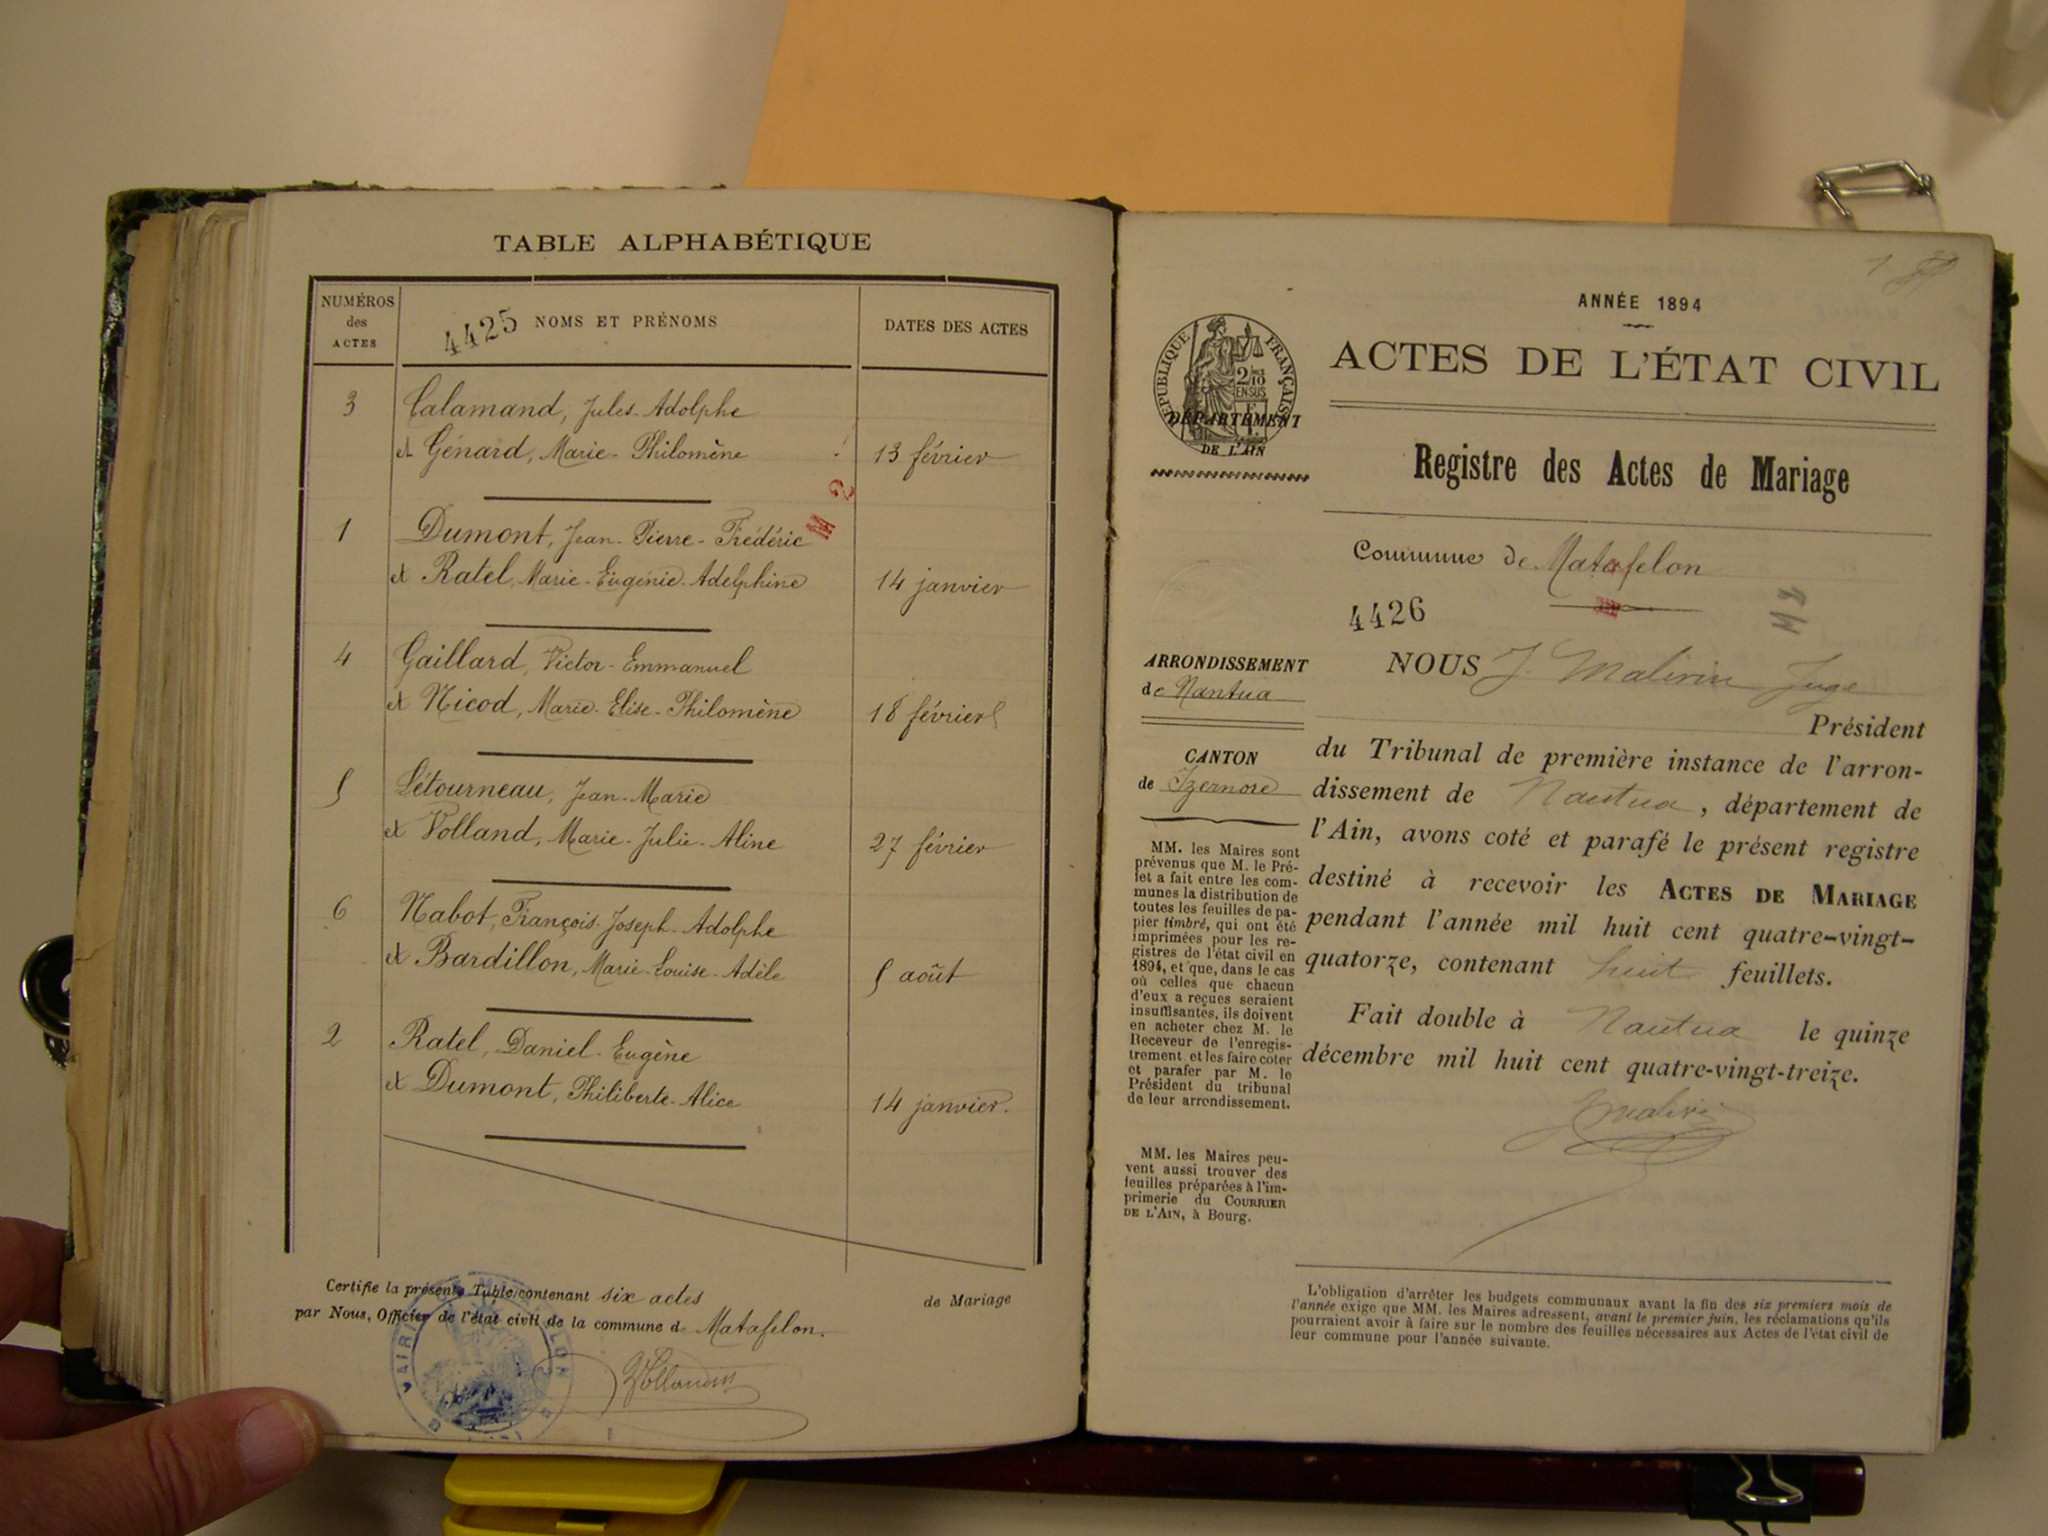 TABLE ALPHABÉTIQUE
NUMÉROS des ACTES
4425 NOMS ET PRÉNOMS
DATES DES ACTES
3 Calamand, Jules-Adolphe
et Génard, Marie-Philomène 13 février
M 2
1 Dumont, Jean-Pierre-Frédéric
et Ratel, Marie-Eugénie-Adelphine 14 janvier
4 Gaillard, Victor-Emmanuel
et Nicod, Marie-Elise-Philomène 18 février
5 Létourneau, Jean-Marie
et Volland, Marie-Julie-Aline 27 février
6 Nabot, François-Joseph-Adolphe
et Bardillon, Marie-Louise-Adèle 5 août
2 Ratel, Daniel-Eugène
et Dumont, Philiberte-Alice 14 janvier.
Certifie la présente Table contenant six actes de Mariage
par Nous, Officier de l'état civil de la commune d Matafelon.
1
ANNÉE 1894
ACTES DE L'ÉTAT CIVIL
RÉPUBLIQUE FRANÇAISE
2/10 EN SUS
DÉPARTEMENT
DE L'AIN
Registre des Actes de Mariage
Commune de Matafelon
4426
ARRONDISSEMENT
de Nantua
CANTON
de Izernore
MM. les Maires sont
prévenus que M. le Pré-
fet a fait entre les com-
munes la distribution de
toutes les feuilles de pa-
pier timbré, qui ont été
imprimées pour les re-
gistres de l'état civil en
1894, et que, dans le cas
où celles que chacun
d'eux a reçues seraient
insuffisantes, ils doivent
en acheter chez M. le
Receveur de l'enregis-
trement et les faire coter
et parafer par M. le
Président du tribunal
de leur arrondissement.
MM. les Maires peu-
vent aussi trouver des
feuilles préparées à l'im-
primerie du COURRIER
DE L'AIN, à Bourg.
NOUS J. Malivin Juge
Président
du Tribunal de première instance de l'arron-
dissement de Nantua, département de
l'Ain, avons coté et parafé le présent registre
destiné à recevoir les ACTES DE MARIAGE
pendant l'année mil huit cent quatre-vingt-
quatorze, contenant huit feuillets.
Fait double à Nantua le quinze
décembre mil huit cent quatre-vingt-treize.
L'obligation d'arrêter les budgets communaux avant la fin des six premiers mois de
l'année exige que MM. les Maires adressent, avant le premier juin, les réclamations qu'ils
pourraient avoir à faire sur le nombre des feuilles nécessaires aux Actes de l'état civil de
leur commune pour l'année suivante.